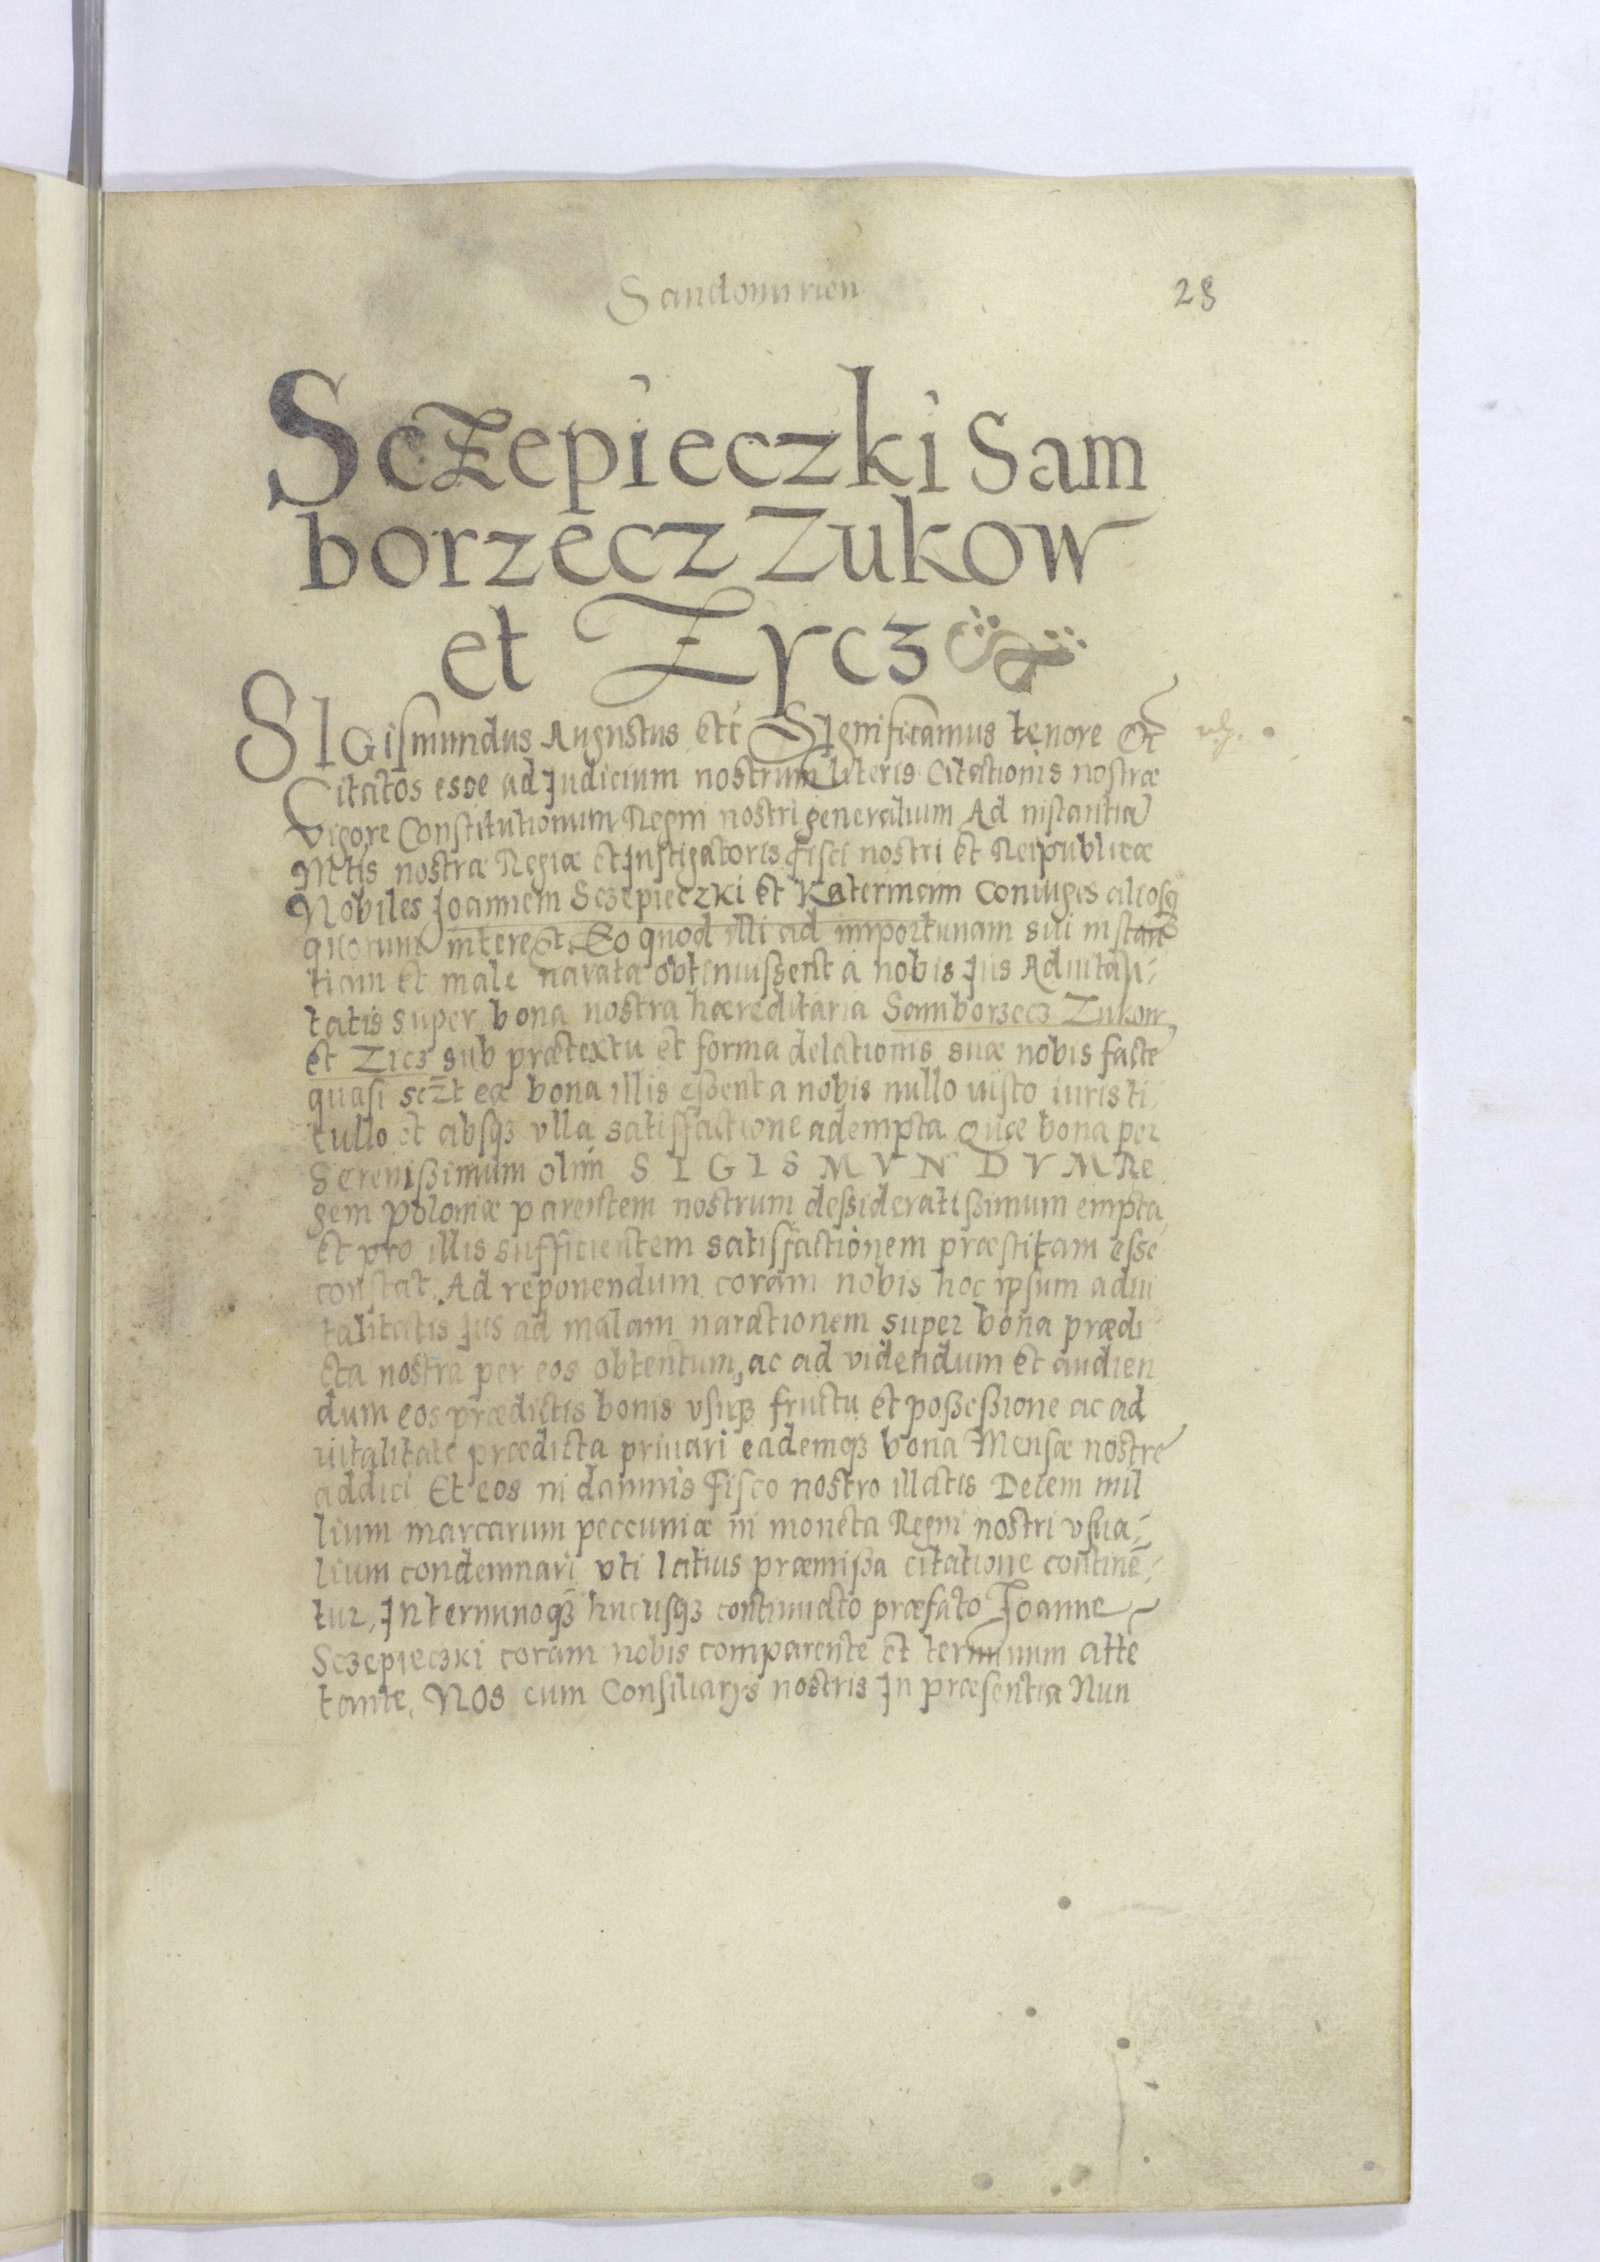 Sandomirien
28
Sczepieczki Sam
borzecz Zukow
et Zycz
SIGismundus Augustus etc Significamus tenore etc
Citatos esse ad Judicium nostrum literis Citationis nostræ
vigore Constitutionum Regni nostri generalium Ad instantia
Mttis nostræ Regiæ et Instigatoris fisci nostri et Reipublicæ
Nobiles Joannem Sczepieczki et Katerinam Coniuges aliosq
quorum interest, Eo quod illi ad importunam sui instan
tiam et male narata obtinuissent a nobis Jus Aduitali-
tatis super bona nostra hæreditaria Samborzecz Zukow,
et Zicz sub prætextu et forma delationis suæ nobis facte
quasi sczt ea bona illis essent a nobis nullo uisto iuris ti
tullo et absqz vlla satisfactione adempta Quæ bona per
Serenissimum olim SIGISMVNDVM Re
gem Poloniæ parentem nostrum dessideratissimum empta
et pro illis sufficientem satisfactionem præstitam esse
constat. Ad reponendum coram nobis hoc ipsum adui
talitatis Jus ad malam narationem super bona prædi-
cta nostra per eos obtentum, ac ad videndum et audien
dum eos prædictis bonis vsuqz fructu et possessione ac ad
uitalitate prædicta priuari eademqz bona Mensæ nostre
addici Et eos in damnis fisco nostro illatis Decem mil
lium marcarum peccuniæ in moneta Regni nostri vsua-
lium condemnari vti latius præmissa citatione continē-
tur, In terminoqz hucusqz continuato præfato Joanne
Sczepieczki coram nobis comparente et terminum atte
tante, Nos cum Consiliarys nostris In præsentia Nun